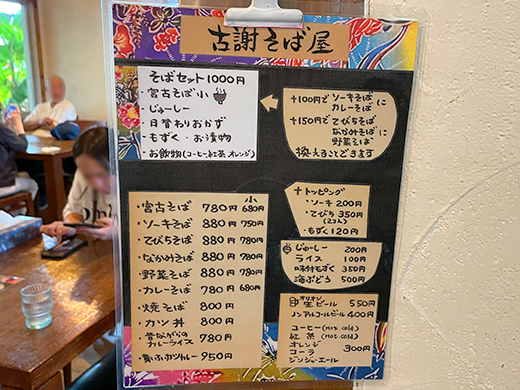 古謝そば屋
そばセット 1000円
・宮古そば 小
・じゅーしー
・日替わりおかず
・もずく・お漬物
・お飲物(コーヒー、紅茶 オレンジ)
+100円で ソーキそば カレーそば に
+150円で てびちそば なかみそば 野菜そば に
換えることできます
小
・宮古そば 780円 680円
・ソーキそば 880円 750円
・てびちそば 880円 780円
・なかみそば 880円 780円
・野菜そば 880円 780円
・カレーそば 780円 680円
・焼そば 800円
・カツ丼 800円
・昔ながらの カレーライス 780円
950円
+トッピング
・ソーキ 200円
・てびち 350円
(2コ入)
・もずく 120円
じゅーしー 200円
ライス 100円
味付もずく 350円
海ぶどう 500円
オリオン 生ビール 550円
ノンアルコールビール 400円
コーヒー(Hot. cold)
紅茶(Hot. cold)
オレンジ
コーラ
ジンジャーエール
300円